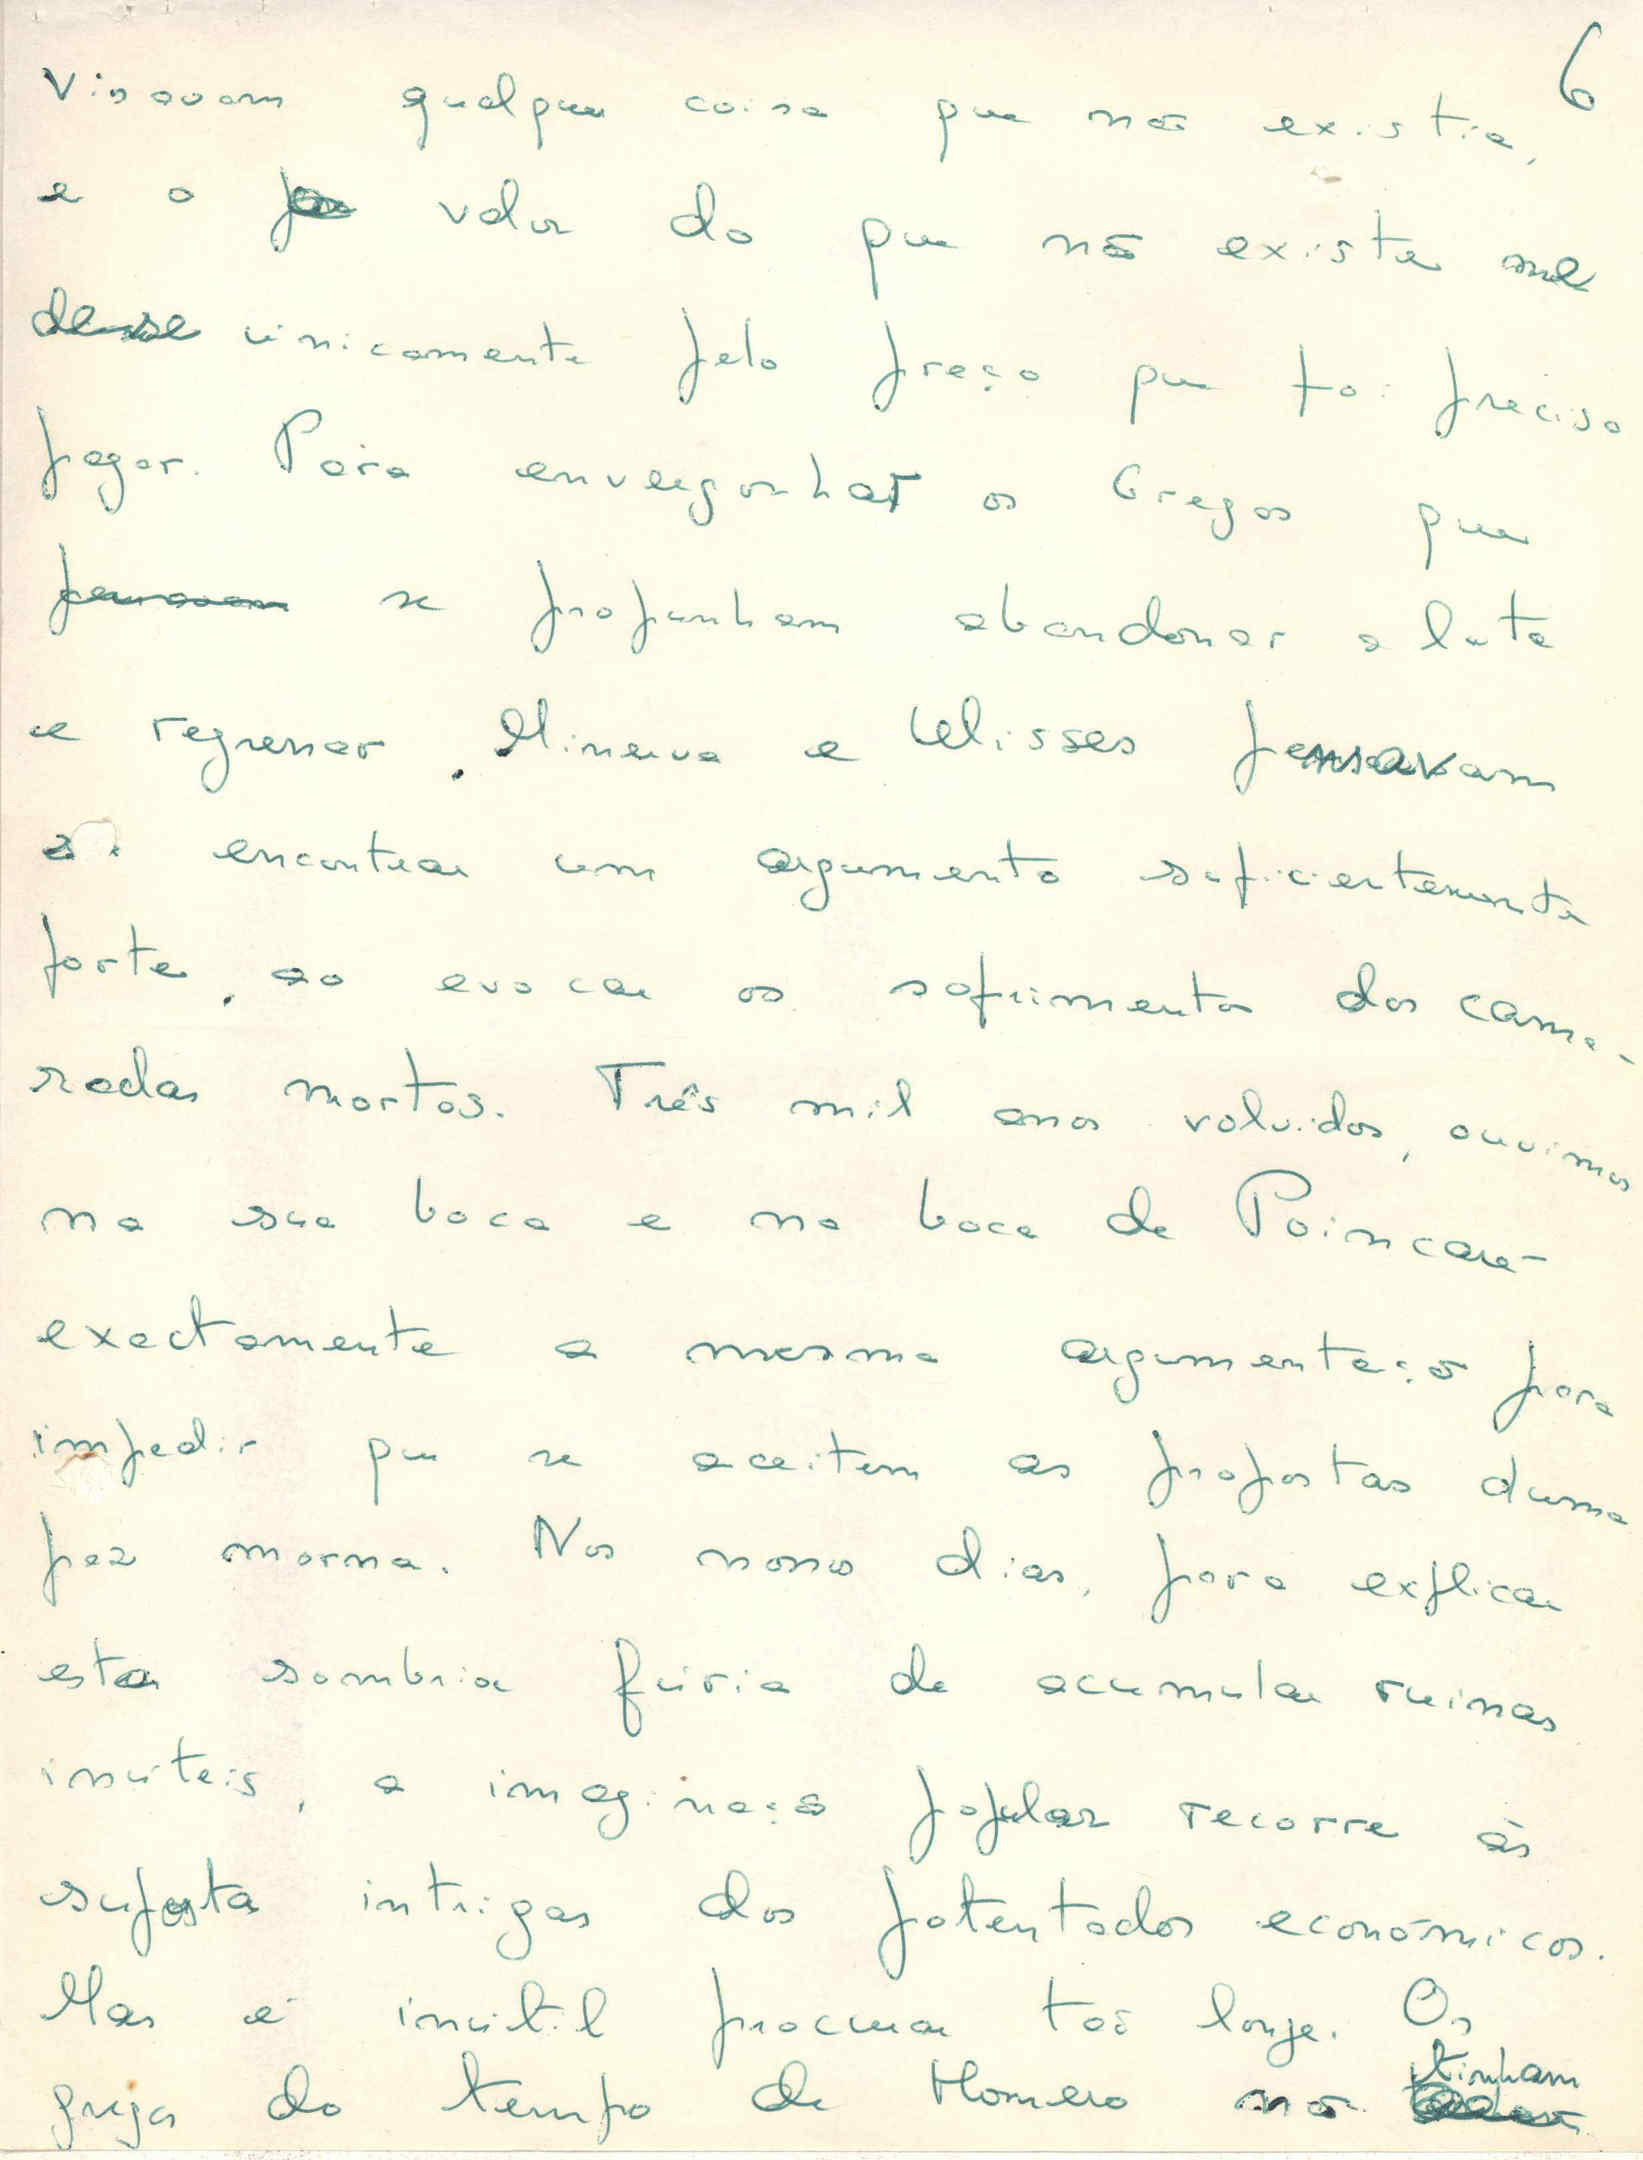 6
visavam qualquer coisa que não existia,
e o valor do que não existe me
de-se unicamente pelo preço que foi preciso
pagar. Para envergonhar os Gregos que
pensavam se propunham abandonar a luta
e regressar, Minerva e Ulisses pensavam
encontrar um argumento suficientemente
forte, ao evocar os sofrimentos dos cama-
radas mortos. Três mil anos volvidos, ouvimos
na sua boca e na boca de Poincaré
exactamente a mesma argumentação para
impedir que se aceitem as propostas duma
paz morna. Nos nossos dias, para explicar
esta sombria fúria de acumular ruinas
inúteis, a imaginação popular recorre às
supostas intrigas dos potentados económicos.
Mas é inútil procurar tão longe. Os
gregos do tempo de Homero não tinham